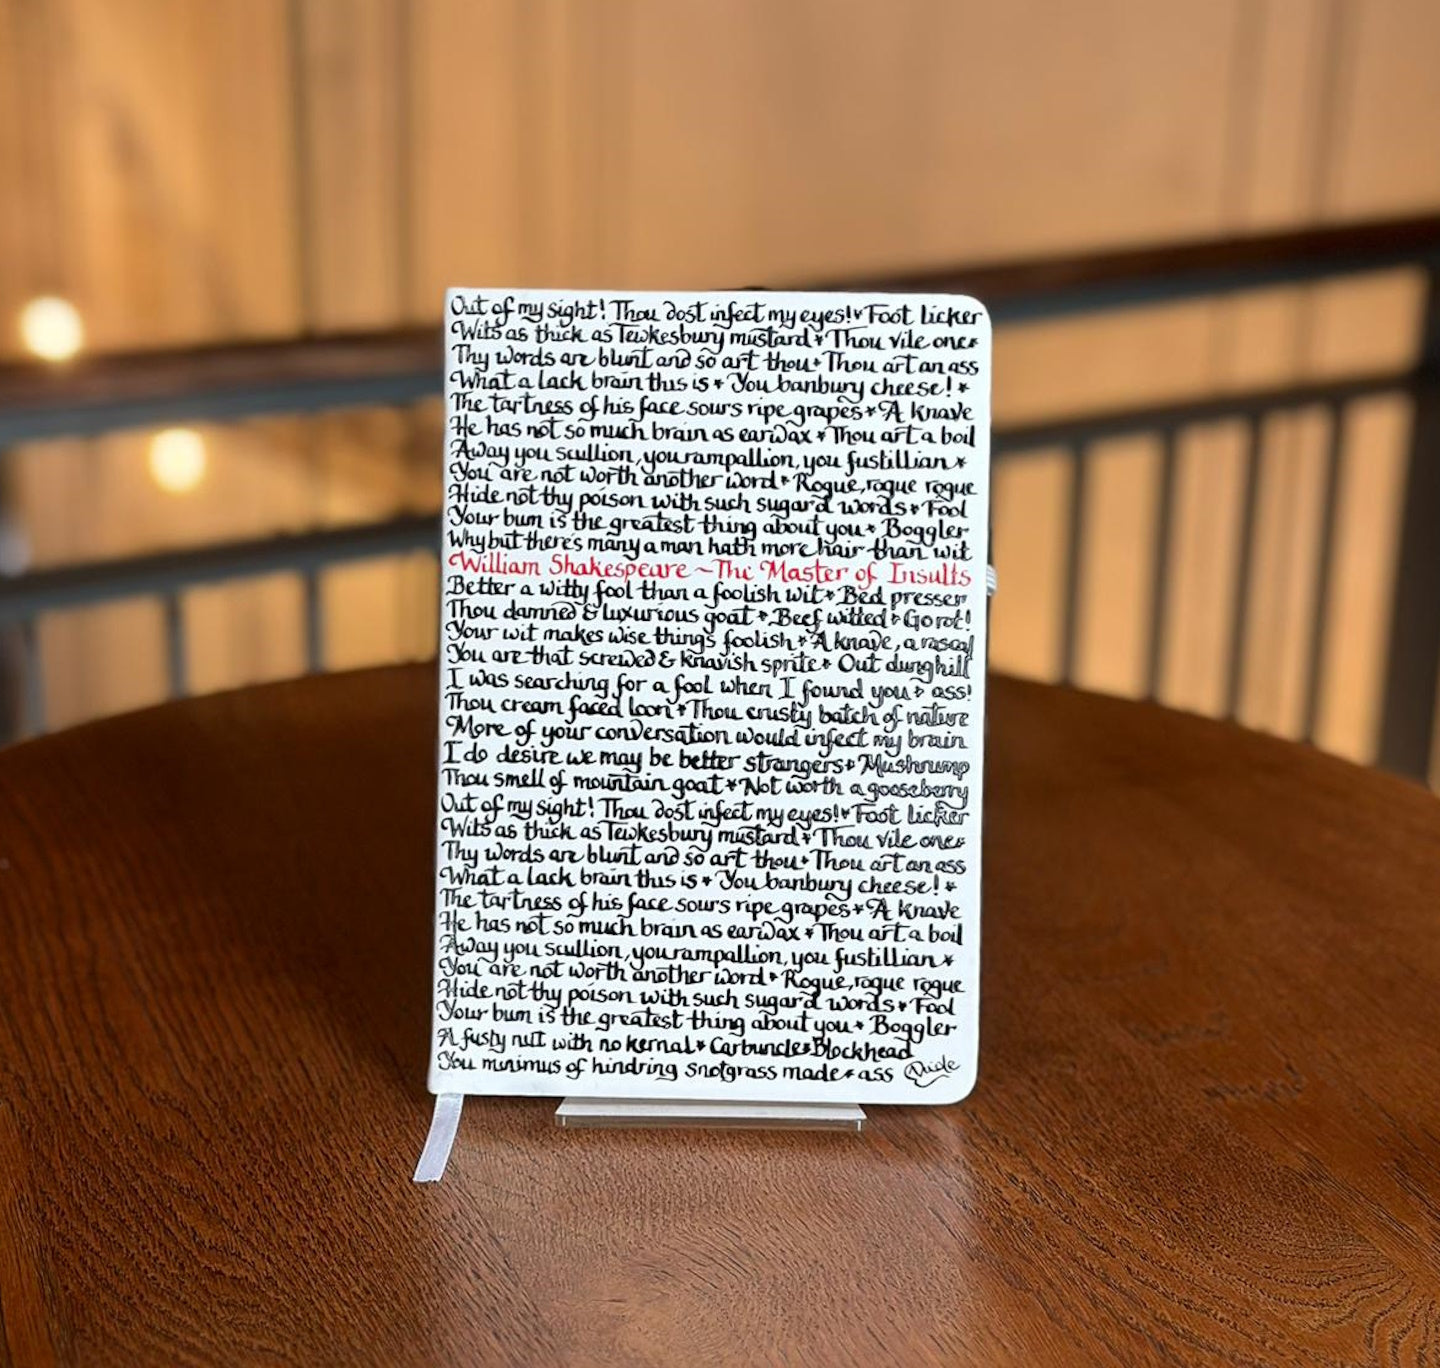 Out of my sight! Thou dost infect my eyes!* Foot licker
Wits as thick as Tewkesbury mustard* Thou vile one*
Thy words are blunt and so art thou* Thou art an ass
What a lack brain this is* You banbury cheese!*
The tartness of his face sours ripe grapes* A knave
He has not so much brain as earwax* Thou art a boil
Away you scullion, you rampallion, you fustillian*
You are not worth another word* Rogue, rogue rogue
Hide not thy poison with such sugar'd words* Fool
Your bum is the greatest thing about you* Boggler
Why but there's many a man hath more hair than wit
William Shakespeare ~ The Master of Insults
Better a witty fool than a foolish wit* Bed presser
Thou damned & luxurious goat* Beef witted* Go rot!
Your wit makes wise things foolish* A knave, a rascal
You are that screwed & knavish sprite* Out dunghill
I was searching for a fool when I found you* ass!
Thou cream faced loon* Thou crusty batch of nature
More of your conversation would infect my brain
I do desire we may be better strangers* Mushrump
Thou smell of mountain goat* Not worth a gooseberry
Out of my sight! Thou dost infect my eyes!* Foot licker
Wits as thick as Tewkesbury mustard* Thou vile one*
Thy words are blunt and so art thou* Thou art an ass
What a lack brain this is* You banbury cheese!*
The tartness of his face sours ripe grapes* A knave
He has not so much brain as earwax* Thou art a boil
Away you scullion, you rampallion, you fustillian*
You are not worth another word* Rogue, rogue rogue
Hide not thy poison with such sugar'd words* Fool
Your bum is the greatest thing about you* Boggler
A fusty nut with no kernal* Carbuncle* Blockhead
You minimus of hindring Snotgrass made* ass